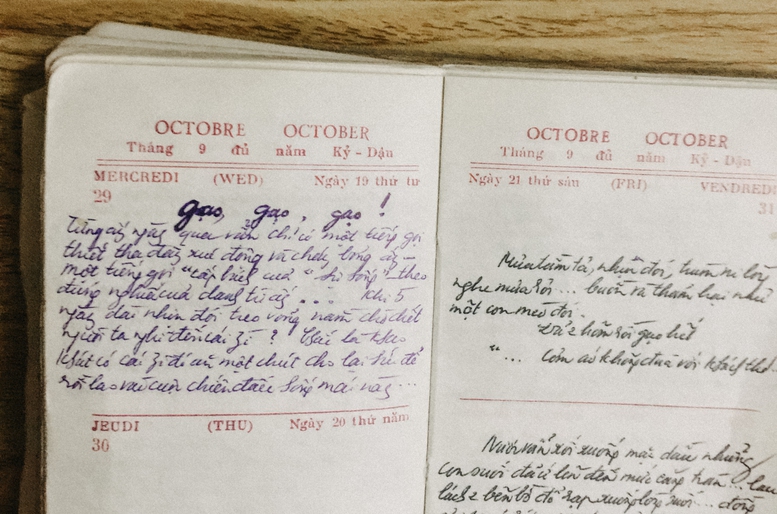 OCTOBRE OCTOBER
Tháng 9 đủ năm Kỷ - Dậu
MERCREDI (WED) Ngày 19 thứ tư
29
gạo, gạo, gạo !
từng ấy ngày qua vẫn chỉ có một tiếng gọi
thiết tha đầy xúc động và cháy lòng ấy
một tiếng gọi "cấp bách của sự sống" theo
đúng nghĩa của danh từ ấy ... khi 5
ngày dài nhịn đói treo vòng nằm chờ chết
người ta nghĩ đến cái gì ? khác là khao
khát có cái gì để ăn một chút cho lại sức để
rồi lao vào cuộc chiến đấu sống mái này ...
JEUDI (THU) Ngày 20 thứ năm
30
OCTOBRE OCTOBER
Tháng 9 đủ năm Kỷ - Dậu
Ngày 21 thứ sáu (FRI) VENDREDI
31
Mưa tầm tã, nhịn đói, trùm ni lông
nghe mưa rơi ... buồn và thảm hại như
một con mèo đói.
Đã 2 hôm rồi gạo hết
"... Cơm áo không đùa với khách thơ
Nước vẫn xối xuống mái đầu những
con suối đã lên đến mức căng tràn ...
lách 2 bên bờ đổ rạp xuống lòng suối ... động